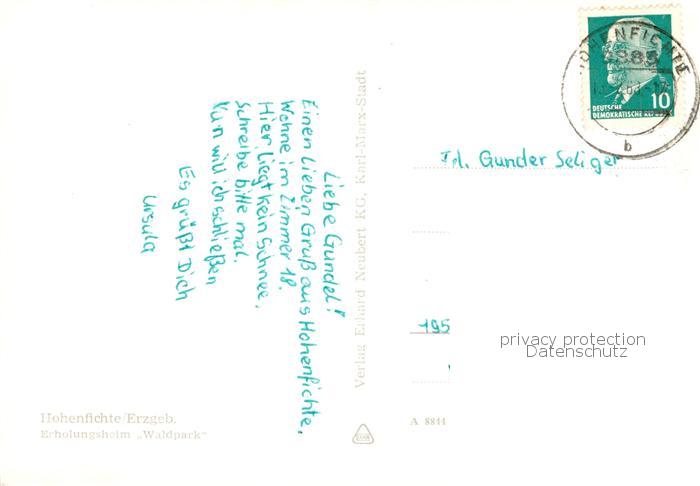 Liebe Gundel!
Einen lieben Gruß aus Hohenfichte,
Wohne im Zimmer 18.
Hier liegt kein Schnee,
Schreibe bitte mal.
Nun will ich schließen
Es grüßt Dich
Ursula
Verlag Erhard Neubert KG, Karl-Marx-Stadt
HOHENFICHTE
b
10
DEUTSCHE
DEMOKRATISCHE
Gunder Seliger
195
privacy protection
Datenschutz
Hohenfichte/Erzgeb.
Erholungsheim „Waldpark“
A 8844